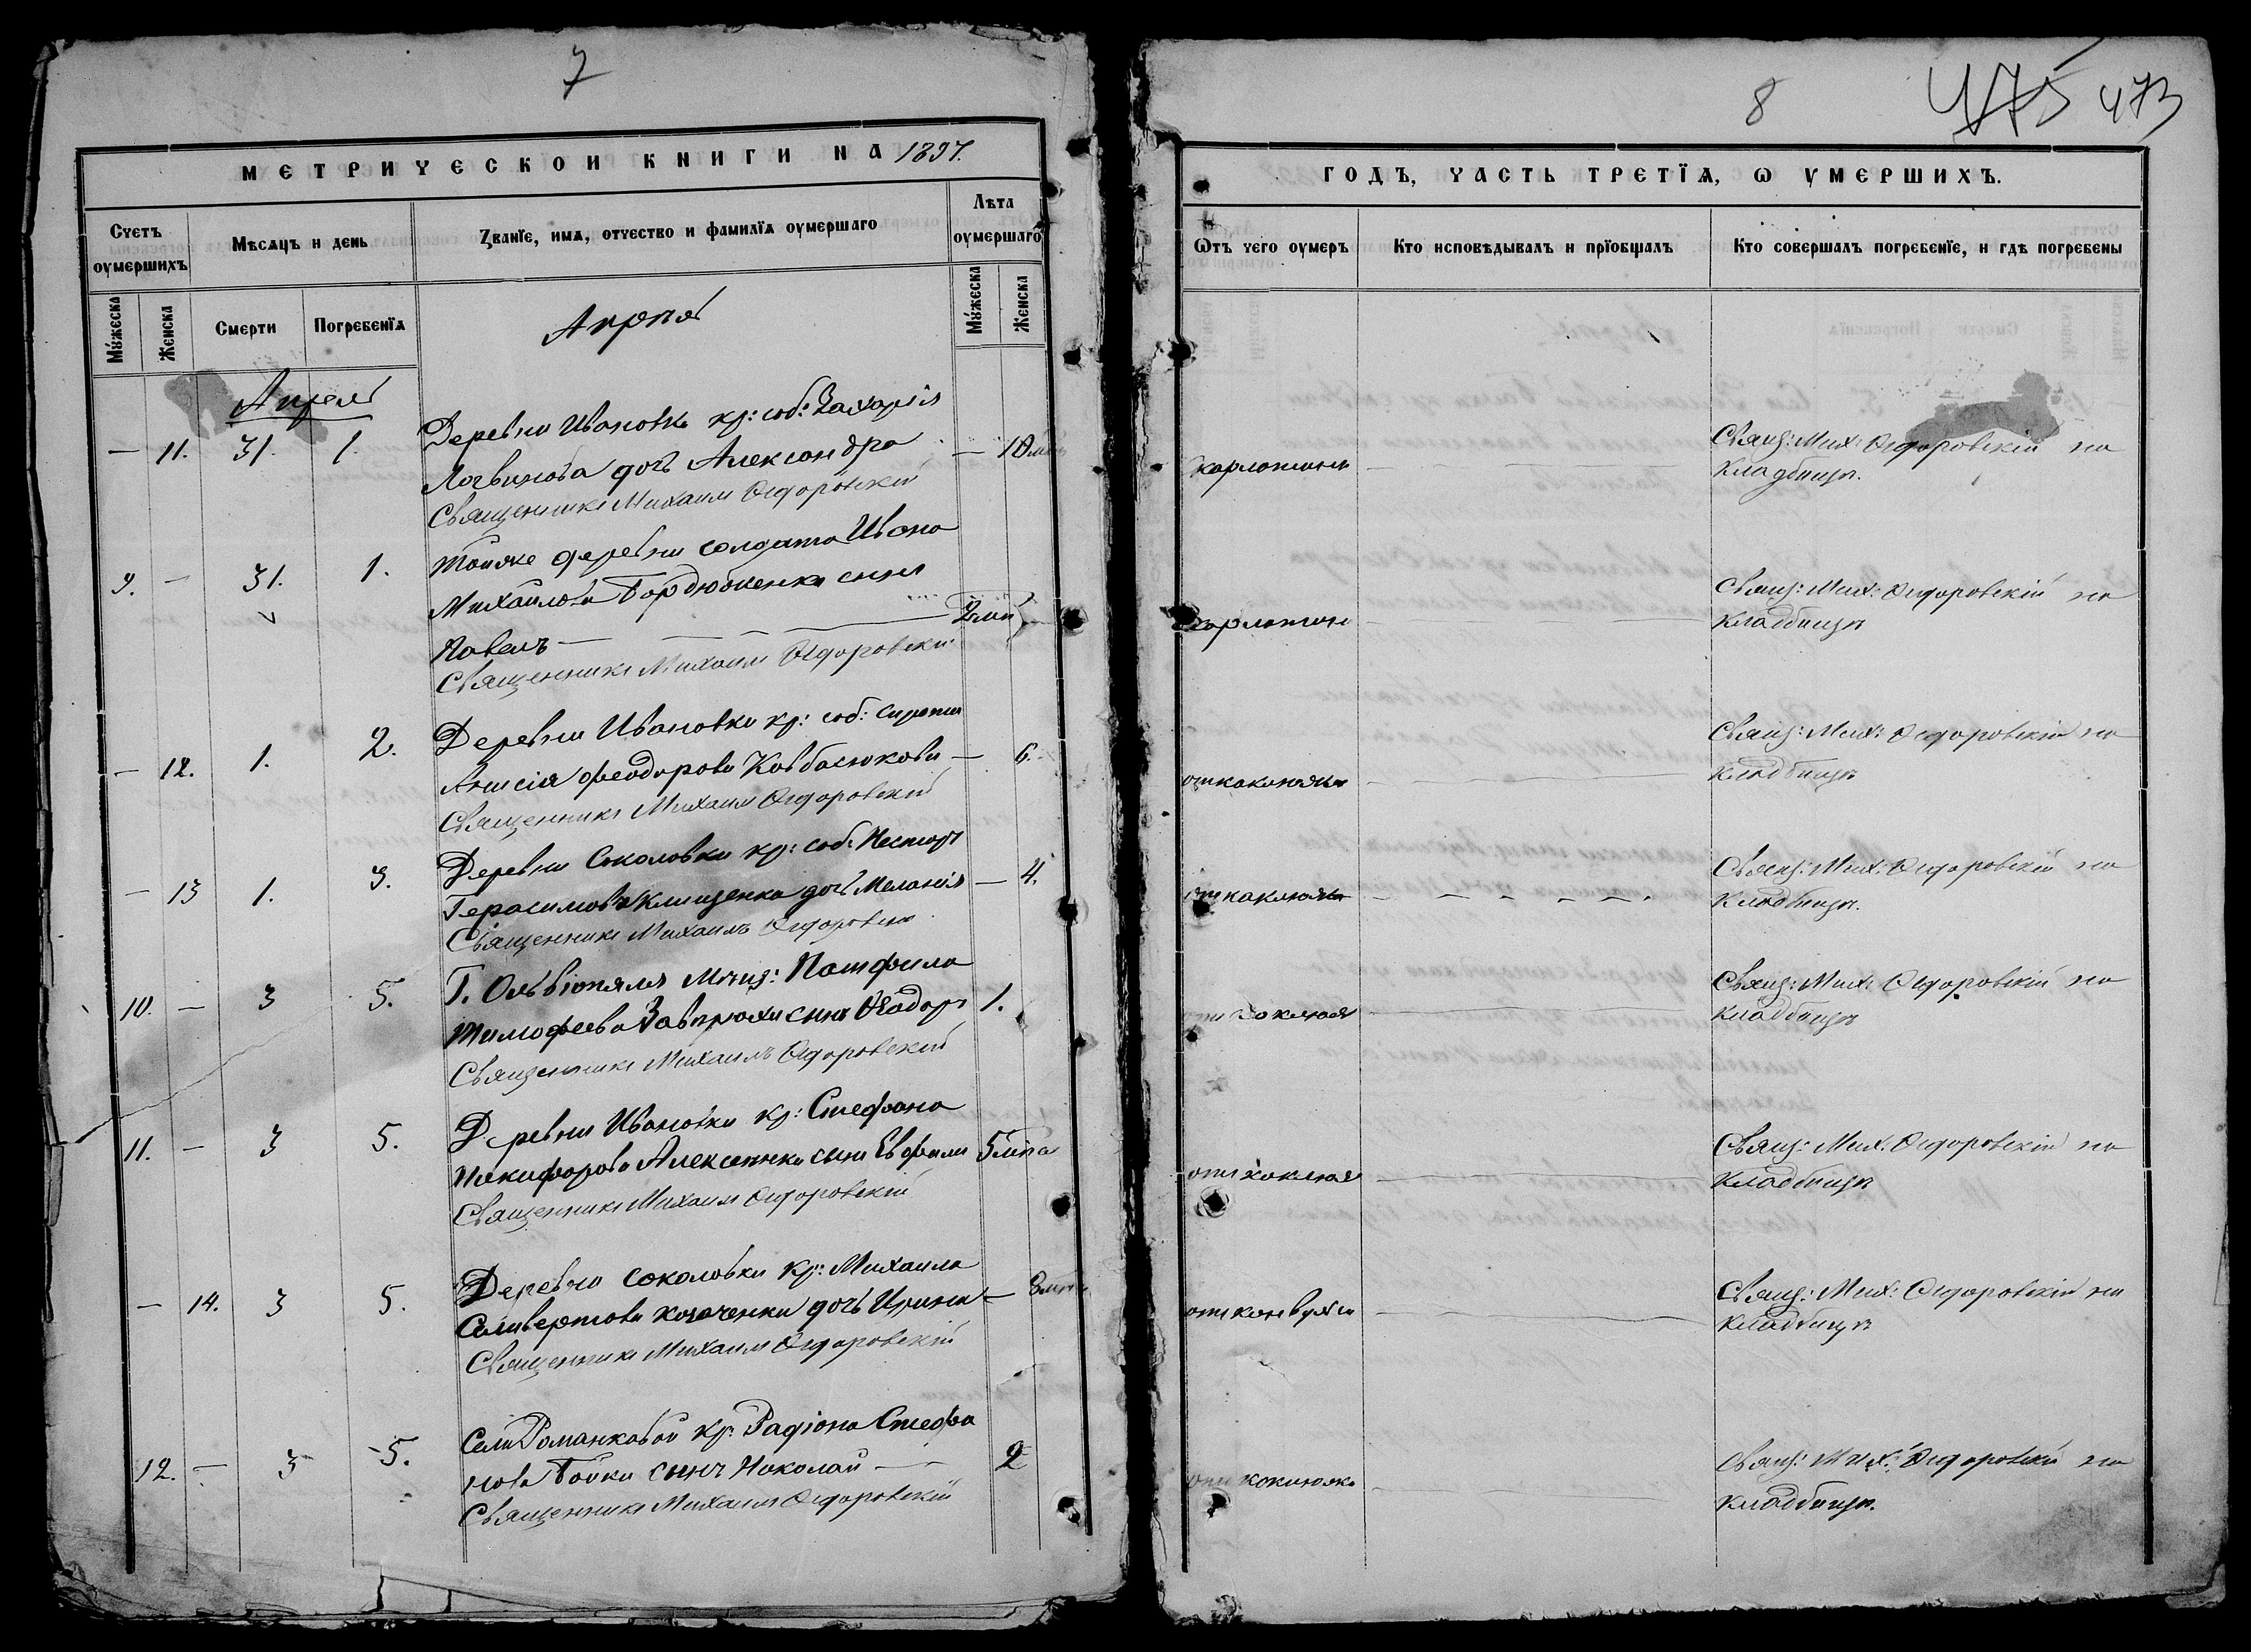 7
МЕТРИЧЕСКОЙ КНИГИ НА 1897.
Счетъ оумершихъ
Мѣсяцъ и день
Званїе, имя, отчество и фамилїя оумершаго
Лѣта оумершаго
Мꙋжеска
Женска
Смерти
Погребенїя
Мꙋжеска
Женска
Апрель
— 11. 31. 1. Деревни Ивановки кр: соб: Захарія
Логвинова дочь Александра — 10 м
Священникъ Михаилъ Сидоровскій
9. — 31. 1. Тойже деревни солдата Ивана
Михайлова Бордюженка сынъ
Павелъ —
Священникъ Михаилъ Сидоровскій
— 12. 1. 2. Деревни Ивановки кр: соб: сирота
Анисія Феодорова Ковбасюкова — 6.
Священникъ Михаилъ Сидоровскій
— 13 1. 3. Деревни Соколовки кр: соб: Нестора
Герасимова Клищенка дочь Меланія — 4.
Священникъ Михаилъ Сидоровскій
10. — 3 5. Г. Ольвіополя мѣщ: Памфила
Тимофеева Завирюхи сынъ Ѳеодоръ 1.
Священникъ Михаилъ Сидоровскій
11. — 3 5. Деревни Ивановки кр: Стефана
Никифорова Алексеенка сынъ Евфимій 5 лѣтъ
Священникъ Михаилъ Сидоровскій
— 14. 3 5. Деревни Соколовки кр: Михаила
Селивертова Козаченка дочь Ирина —
Священникъ Михаилъ Сидоровскій
12. — 3 5. Села Романковой кр: Радіона Стефа
нова Бойки сынъ Николай — 2
Священникъ Михаилъ Сидоровскій
8
475 473
ГОДЪ, ЧАСТЬ ТРЕТЇЯ, Ѡ ОУМЕРШИХЪ.
Ѿтъ чего оумеръ
Кто исповѣдывалъ и прїобщалъ
Кто совершалъ погребенїе, и гдѣ погребены
скарлатины Свящ: Мих: Сидоровскій на
кладбищѣ.
скарлатины Свящ: Мих: Сидоровскій на
кладбищѣ
отъ коклюша Свящ: Мих: Сидоровскій на
кладбищѣ
отъ коклюша Свящ: Мих: Сидоровскій на
кладбищѣ.
отъ коклюша Свящ: Мих: Сидоровскій на
кладбищѣ
отъ коклюша Свящ: Мих. Сидоровскій на
кладбищѣ
Свящ: Мих: Сидоровскій на
кладбищѣ
отъ коклюша Свящ: Мих: Сидоровскій на
кладбищѣ.